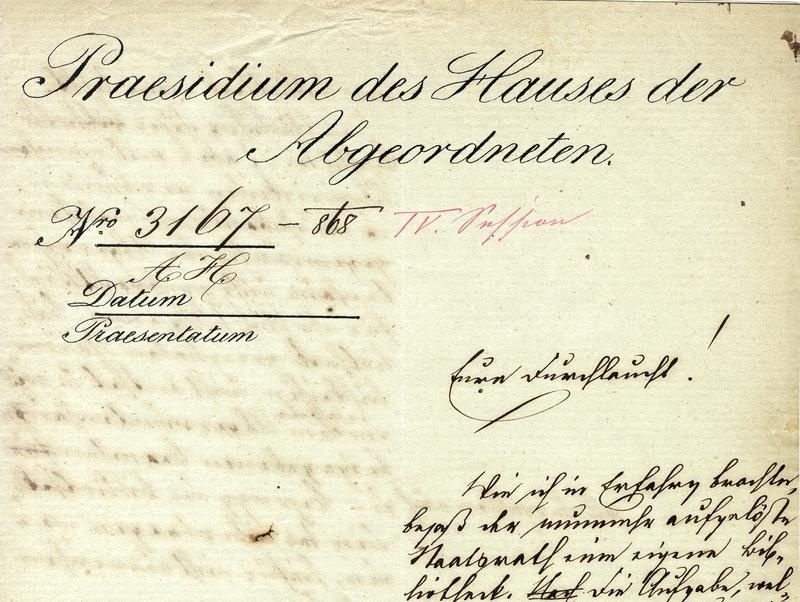 Praesidium des Hauses der
Abgeordneten.
Nro 3167 – 868 IV. Session
A H
Datum
Praesentatum
Eure Durchlaucht!
Wie ich in Erfahrg brachte,
besaß der nunmehr aufgelöste
Staatsrath eine eigene Bib-
liothek. die Aufgabe, wel-